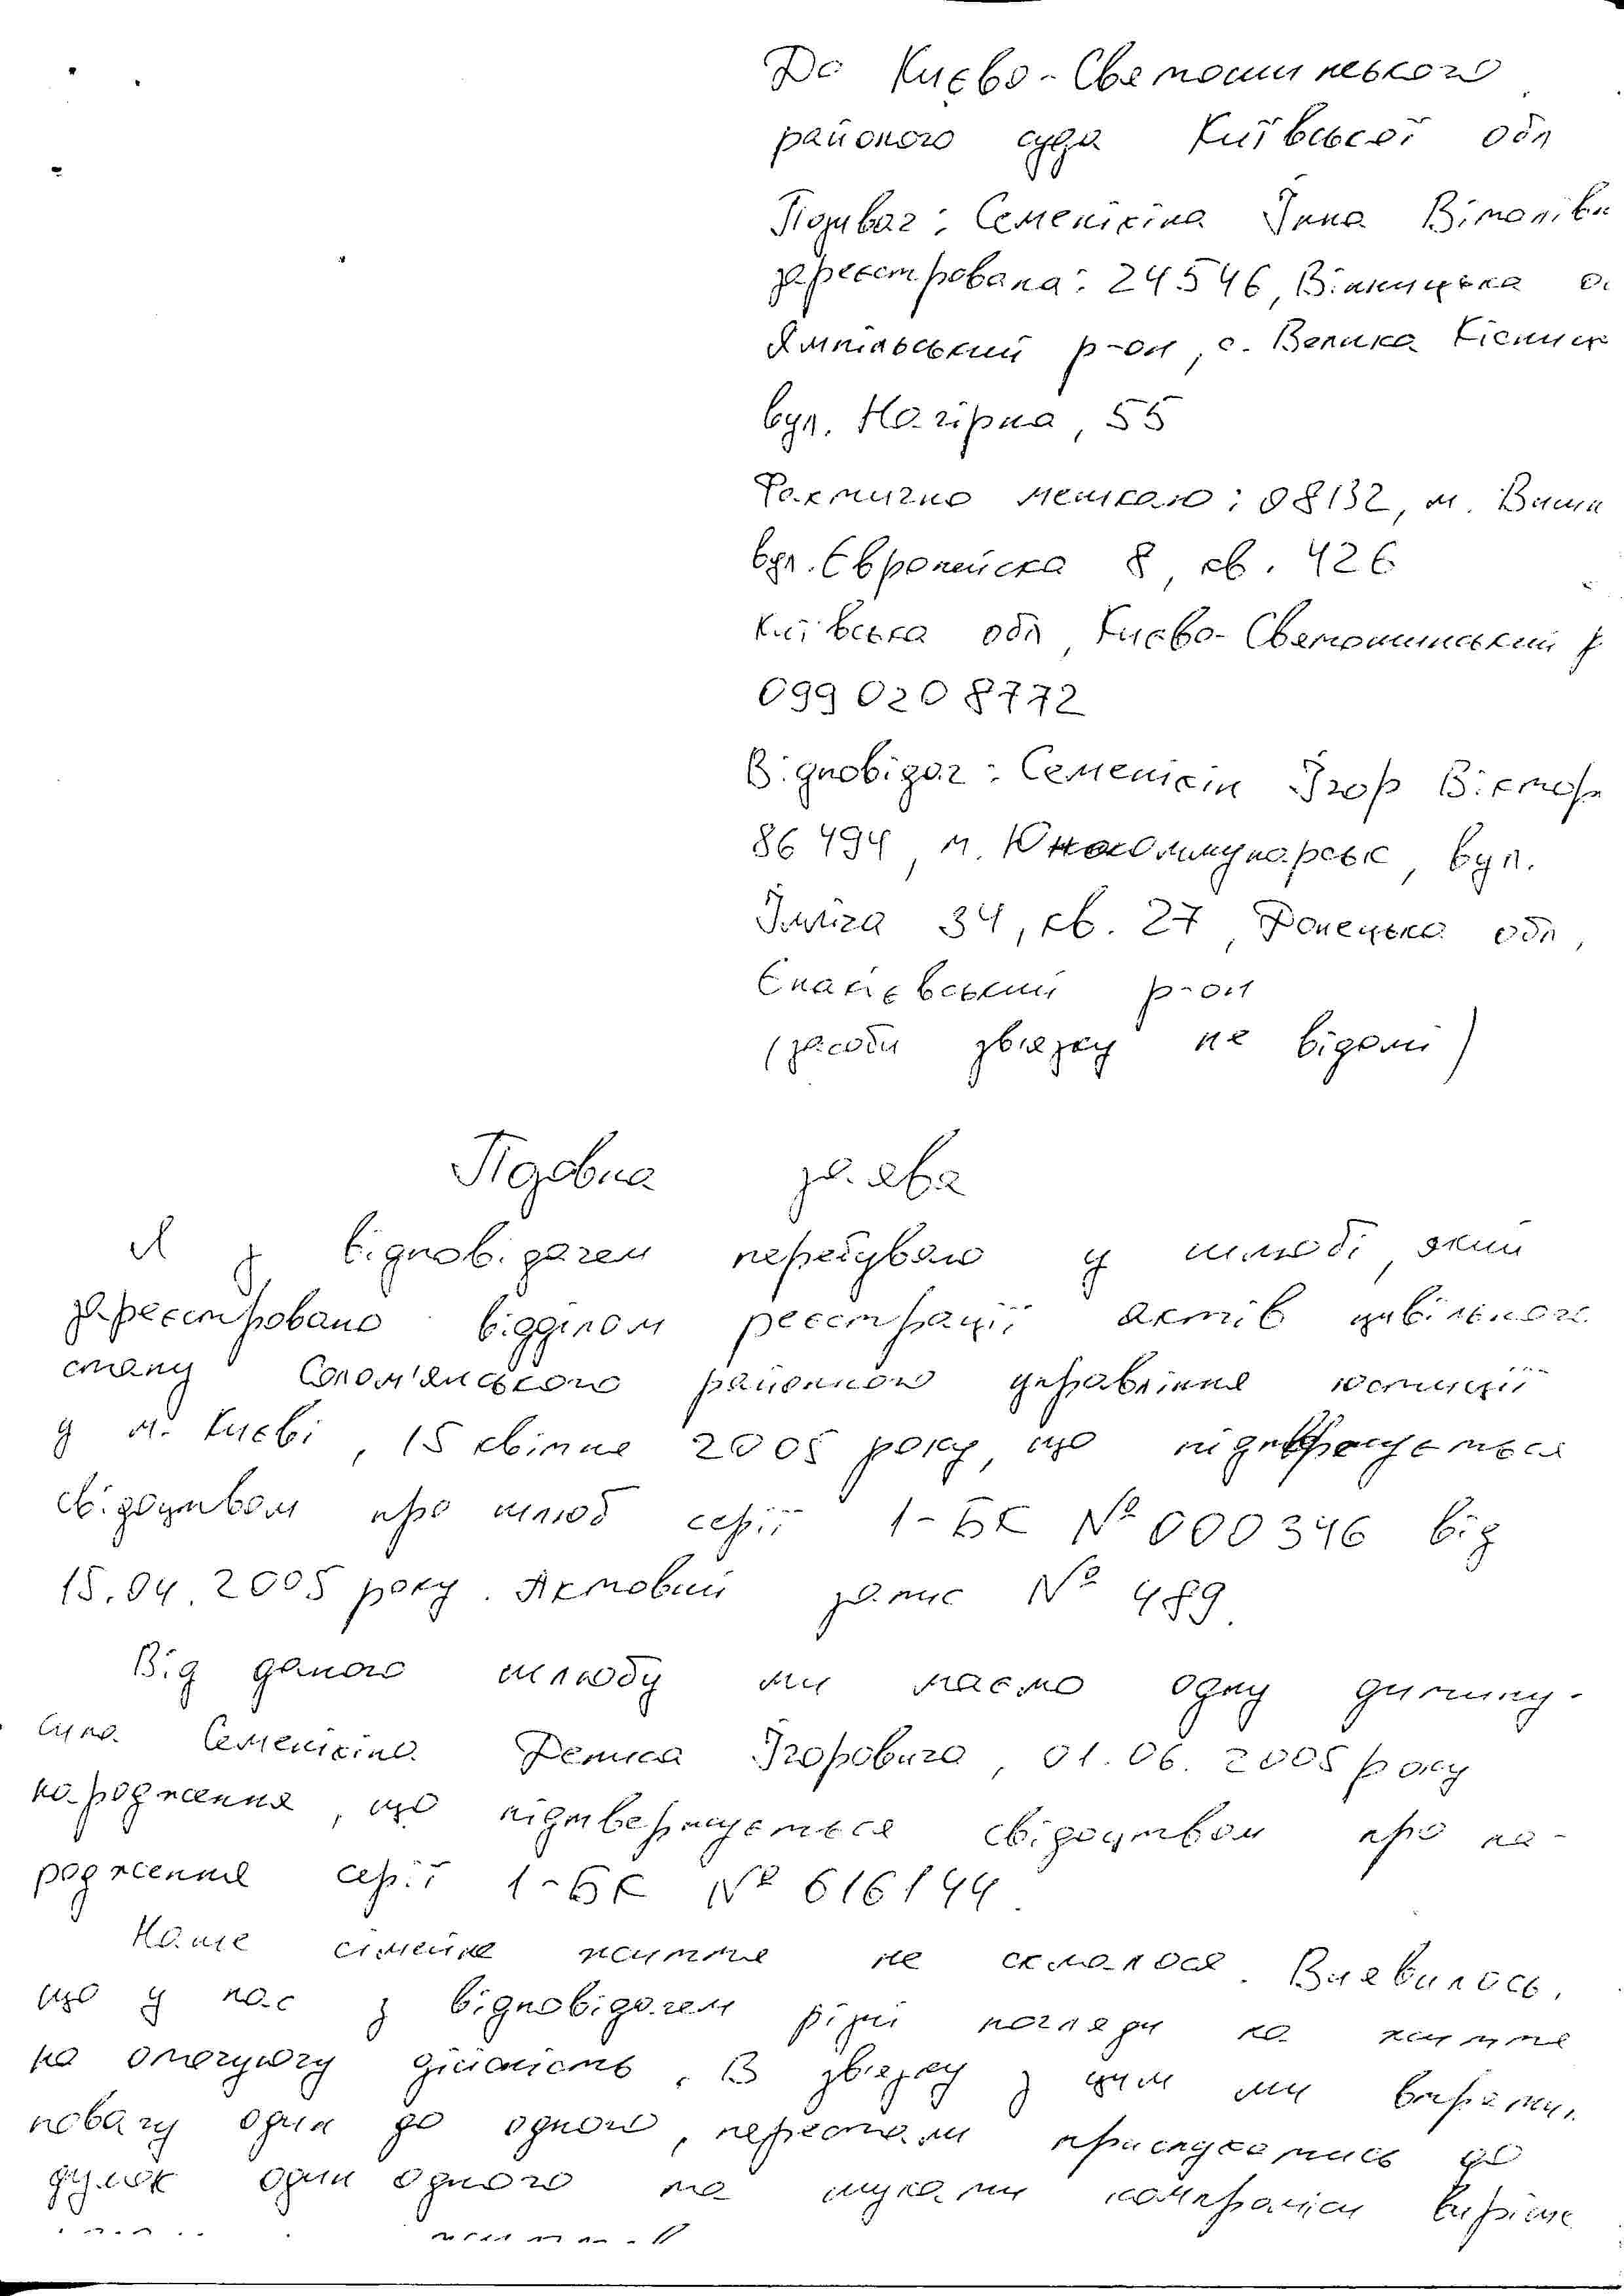 До Києво-Святошинського
районого суда Київської обл
Позивач: Семенікіна Інна Віталівн
зареєстрована: 24546, Вінницька о
Ямпільський р-он, с. Велика Кісниця
вул. Нагірна, 55
Фактично мешкаю: 08132, м. Вишн
вул. Європейска 8, кв. 426
Київська обл, Києво-Святошинський р
0990208772
Відповідач: Семенікін Ігор Віктор
86494, м. Юнокомунарськ, вул.
Ілліча 34, кв. 27, Донецька обл,
Єнакієвський р-он
(засоби звязку не відомі)
Позовна заява
Я з відповідачем перебуваю у шлюбі, який
зареєстровано відділом реєстрації актів цивільного
стану Солом'янського районного управління юстиції
у м. Києві, 15 квітня 2005 року, що підтверджується
свідоцтвом про шлюб серії 1-БК № 000346 від
15.04.2005 року. Актовий запис № 489.
Від даного шлюбу ми маємо одну дитину-
сина Семенікіна Дениса Ігоровича, 01.06.2005 року
народження, що підтверджується свідоцтвом про на-
родження серії 1-БК № 616144.
Наше сімейне життя не склалося. Виявилось,
що у нас з відповідачем різні погляди на життя
на оточуючу дійсність. В звязку з цим ми втратили
повагу один до одного, перестали прислухатись до
думок один одного та шукати компроміси вирішен